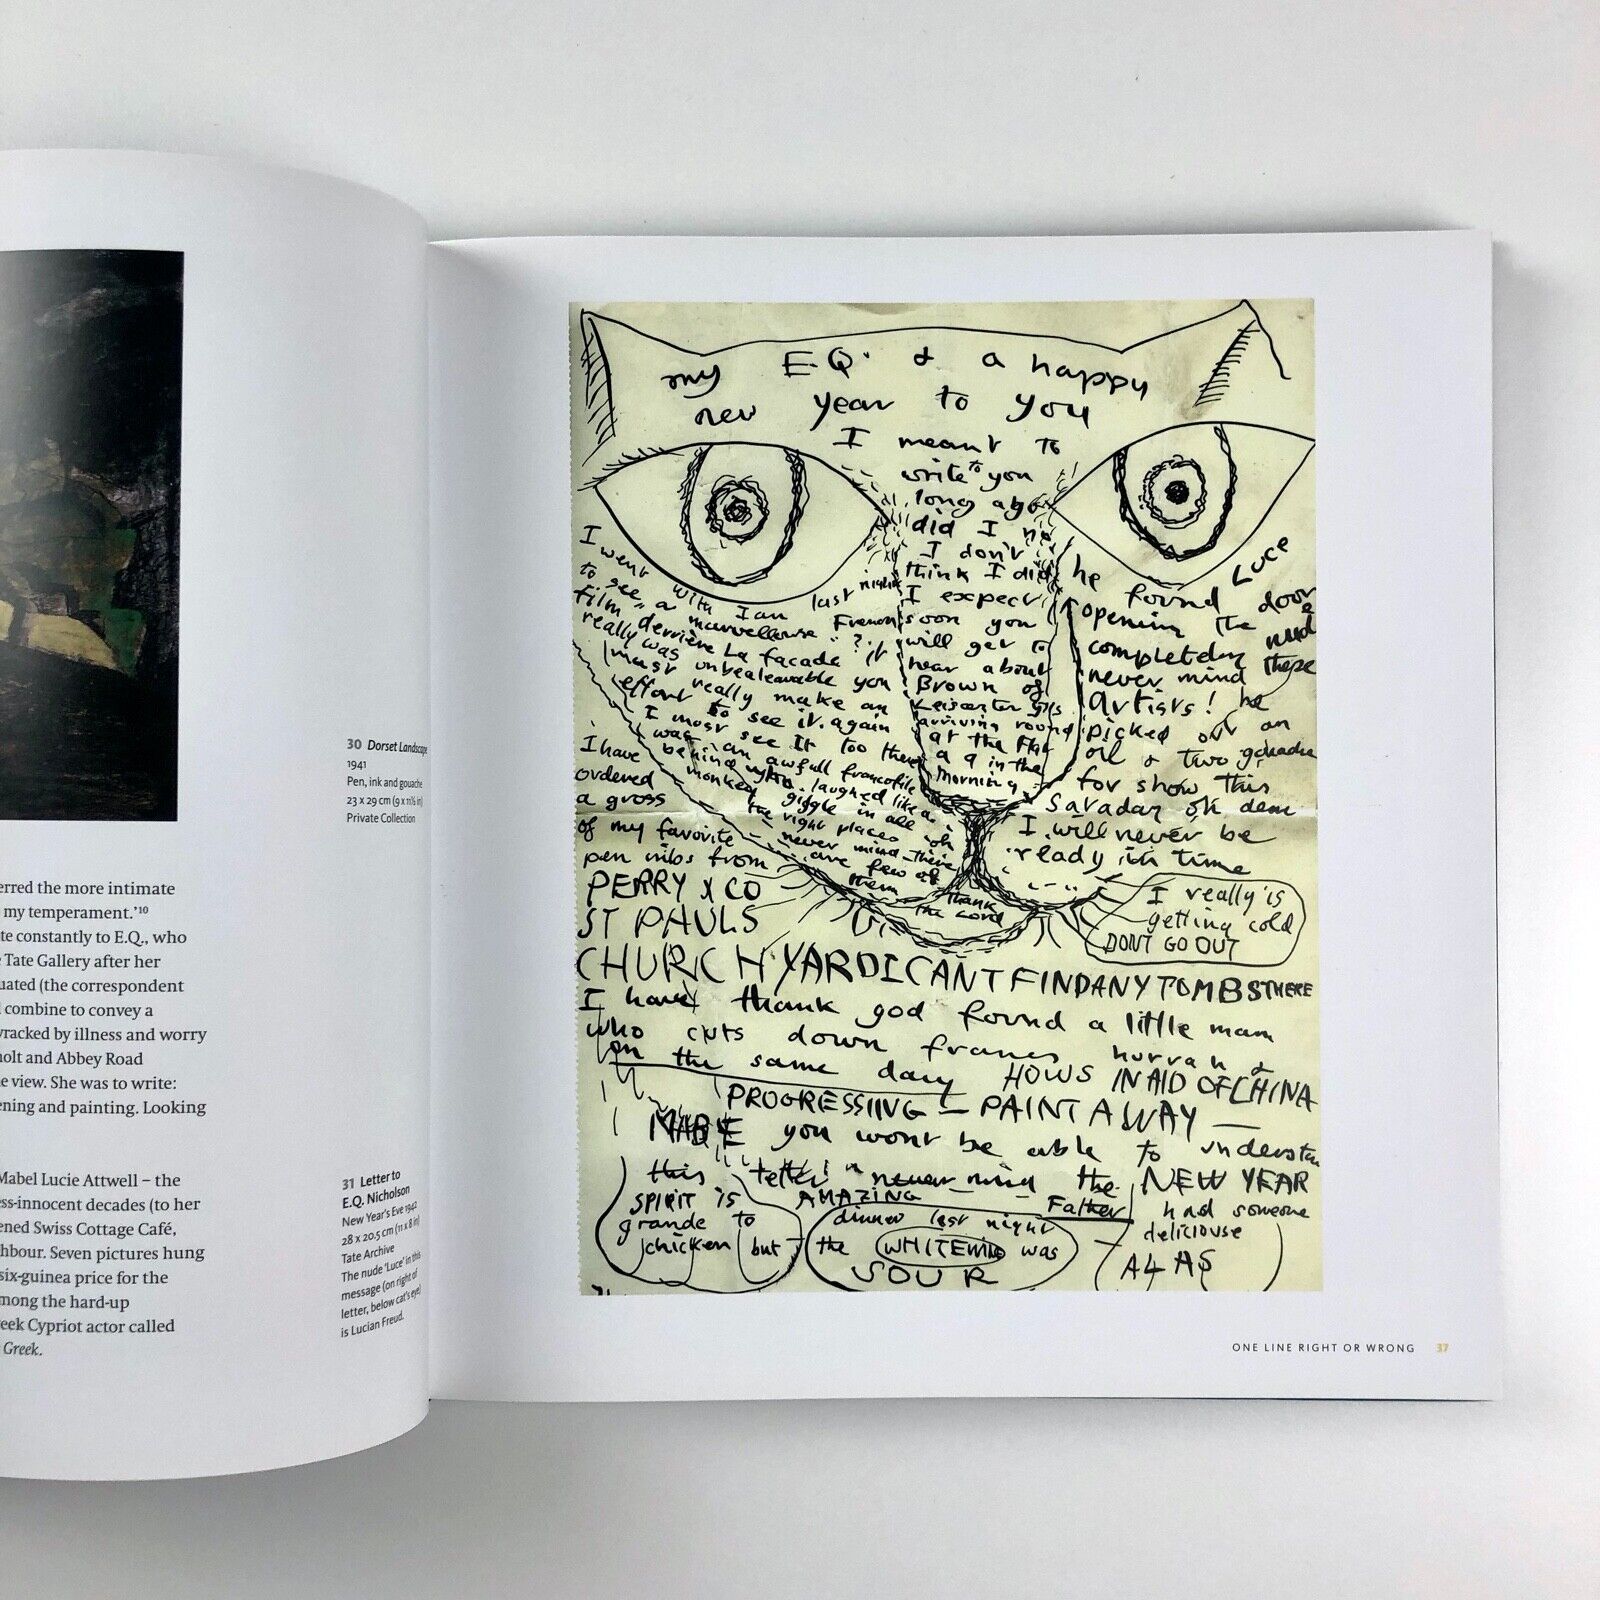 30 Dorset Landscape
1941
Pen, ink and gouache
23 x 29 cm (9 x 11½ in)
Private Collection
erred the more intimate
my temperament.’10
te constantly to E.Q., who
Tate Gallery after her
uated (the correspondent
combine to convey a
wracked by illness and worry
holt and Abbey Road
e view. She was to write:
ening and painting. Looking
Mabel Lucie Attwell – the
ss-innocent decades (to her
ened Swiss Cottage Café,
hbour. Seven pictures hung
six-guinea price for the
mong the hard-up
eek Cypriot actor called
Greek.
31 Letter to
E.Q. Nicholson
New Year's Eve 1942
28 x 20.5 cm (11 x 8 in)
Tate Archive
The nude 'Luce' in this
message (on right of
letter, below cat's eye)
is Lucian Freud.
my E.Q. & a happy
new year to you
I meant to
write to you
long ago
did I no
I don't
think I did
I expect
soon you
will get to
hear about
Brown of
Leicester Glls
arriving round
at the flat
a 9 in the
morning
he found Luce
opening the door
completely nude
never mind these
artists! he
picked out an
oil & two gouache
for show this
Saraday oh dear
I will never be
ready in time
I went with Ian last night
to see a marvellouse French
film "derrière La facade" ? it
really was unbealeavable you
must really make an
effort to see it. again
I must see it too there
was an awfull francofile
behind laughed like a
monkey giggle in all oh
the right places
never mind there
are few of
them thank
the Lord
I have
ordered
a gross
of my favorite
pen nibs from
PERRY & CO
ST PAULS
CHURCHYARD I CANT FIND ANY TOMBS THERE
I really is
getting cold
DONT GO OUT
I have thank god found a little man
who cuts down frames hurrah &
on the same day HOWS IN AID OF CHINA
PROGRESSIING — PAINT AWAY —
you wont be able to understan
this letter never mind the NEW YEAR
SPIRIT IS AMAZING Father had someone
grande to dinner last night deliciouse
chicken but the WHITE wine was
SOUR ALAS
ONE LINE RIGHT OR WRONG 37